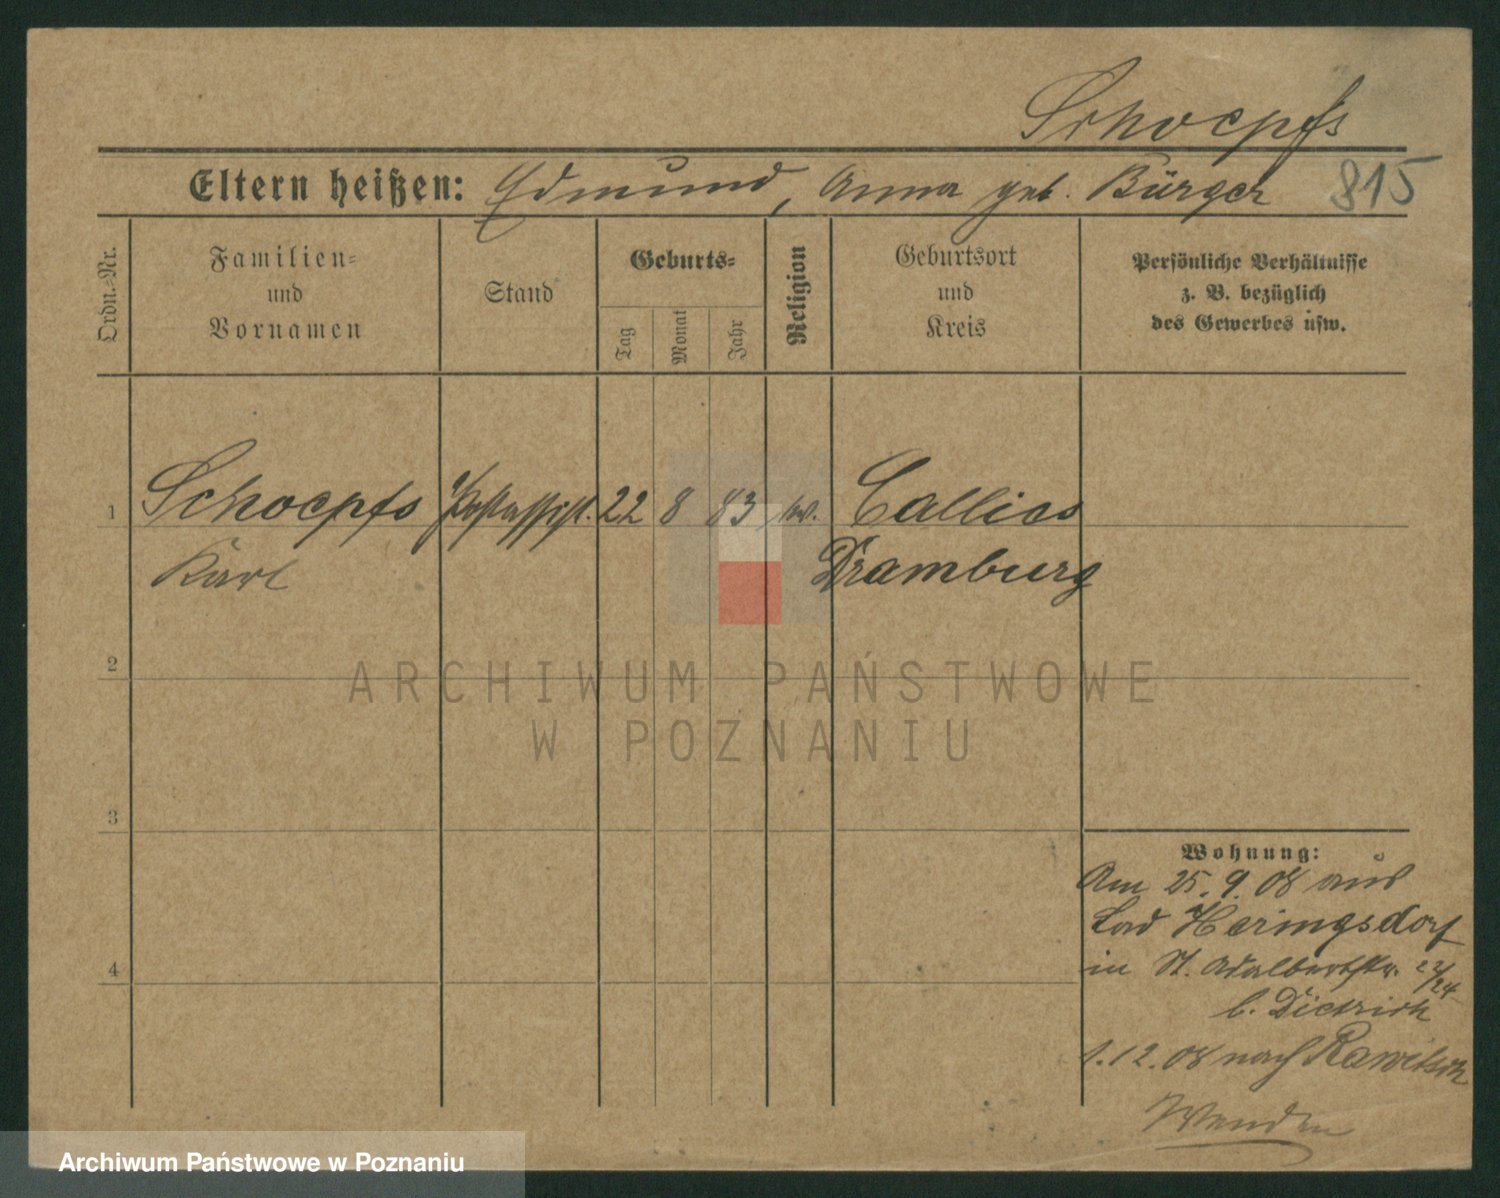 Schoepfs
Eltern heißen: Edmund, Anna geb. Bürger 815
Ordn.-Nr.
Familien-
und
Vornamen
Stand
Geburts-
Tag
Monat
Jahr
Religion
Geburtsort
und
Kreis
Persönliche Verhältnisse
z. B. bezüglich
des Gewerbes usw.
1 Schoepfs Postassist. 22 8 83 ev. Callies
Karl Dramburg
2
3
4
Wohnung:
Am 25.9.08 aus
Bad Heringsdorf
in St. Adalbertstr. 22/24
b. Dietrich
1.12.08 nach Rawitsch
Wenden
ARCHIWUM PAŃSTWOWE
W POZNANIU
Archiwum Państwowe w Poznaniu